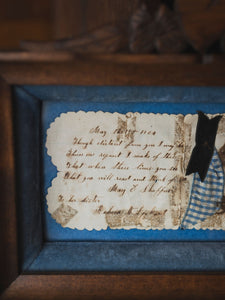 May the 1864
Though distant from you I may be
This one request I make of thee
That when these lines you see
That you will read and think of me
Mary E
To her sister
Rebecca